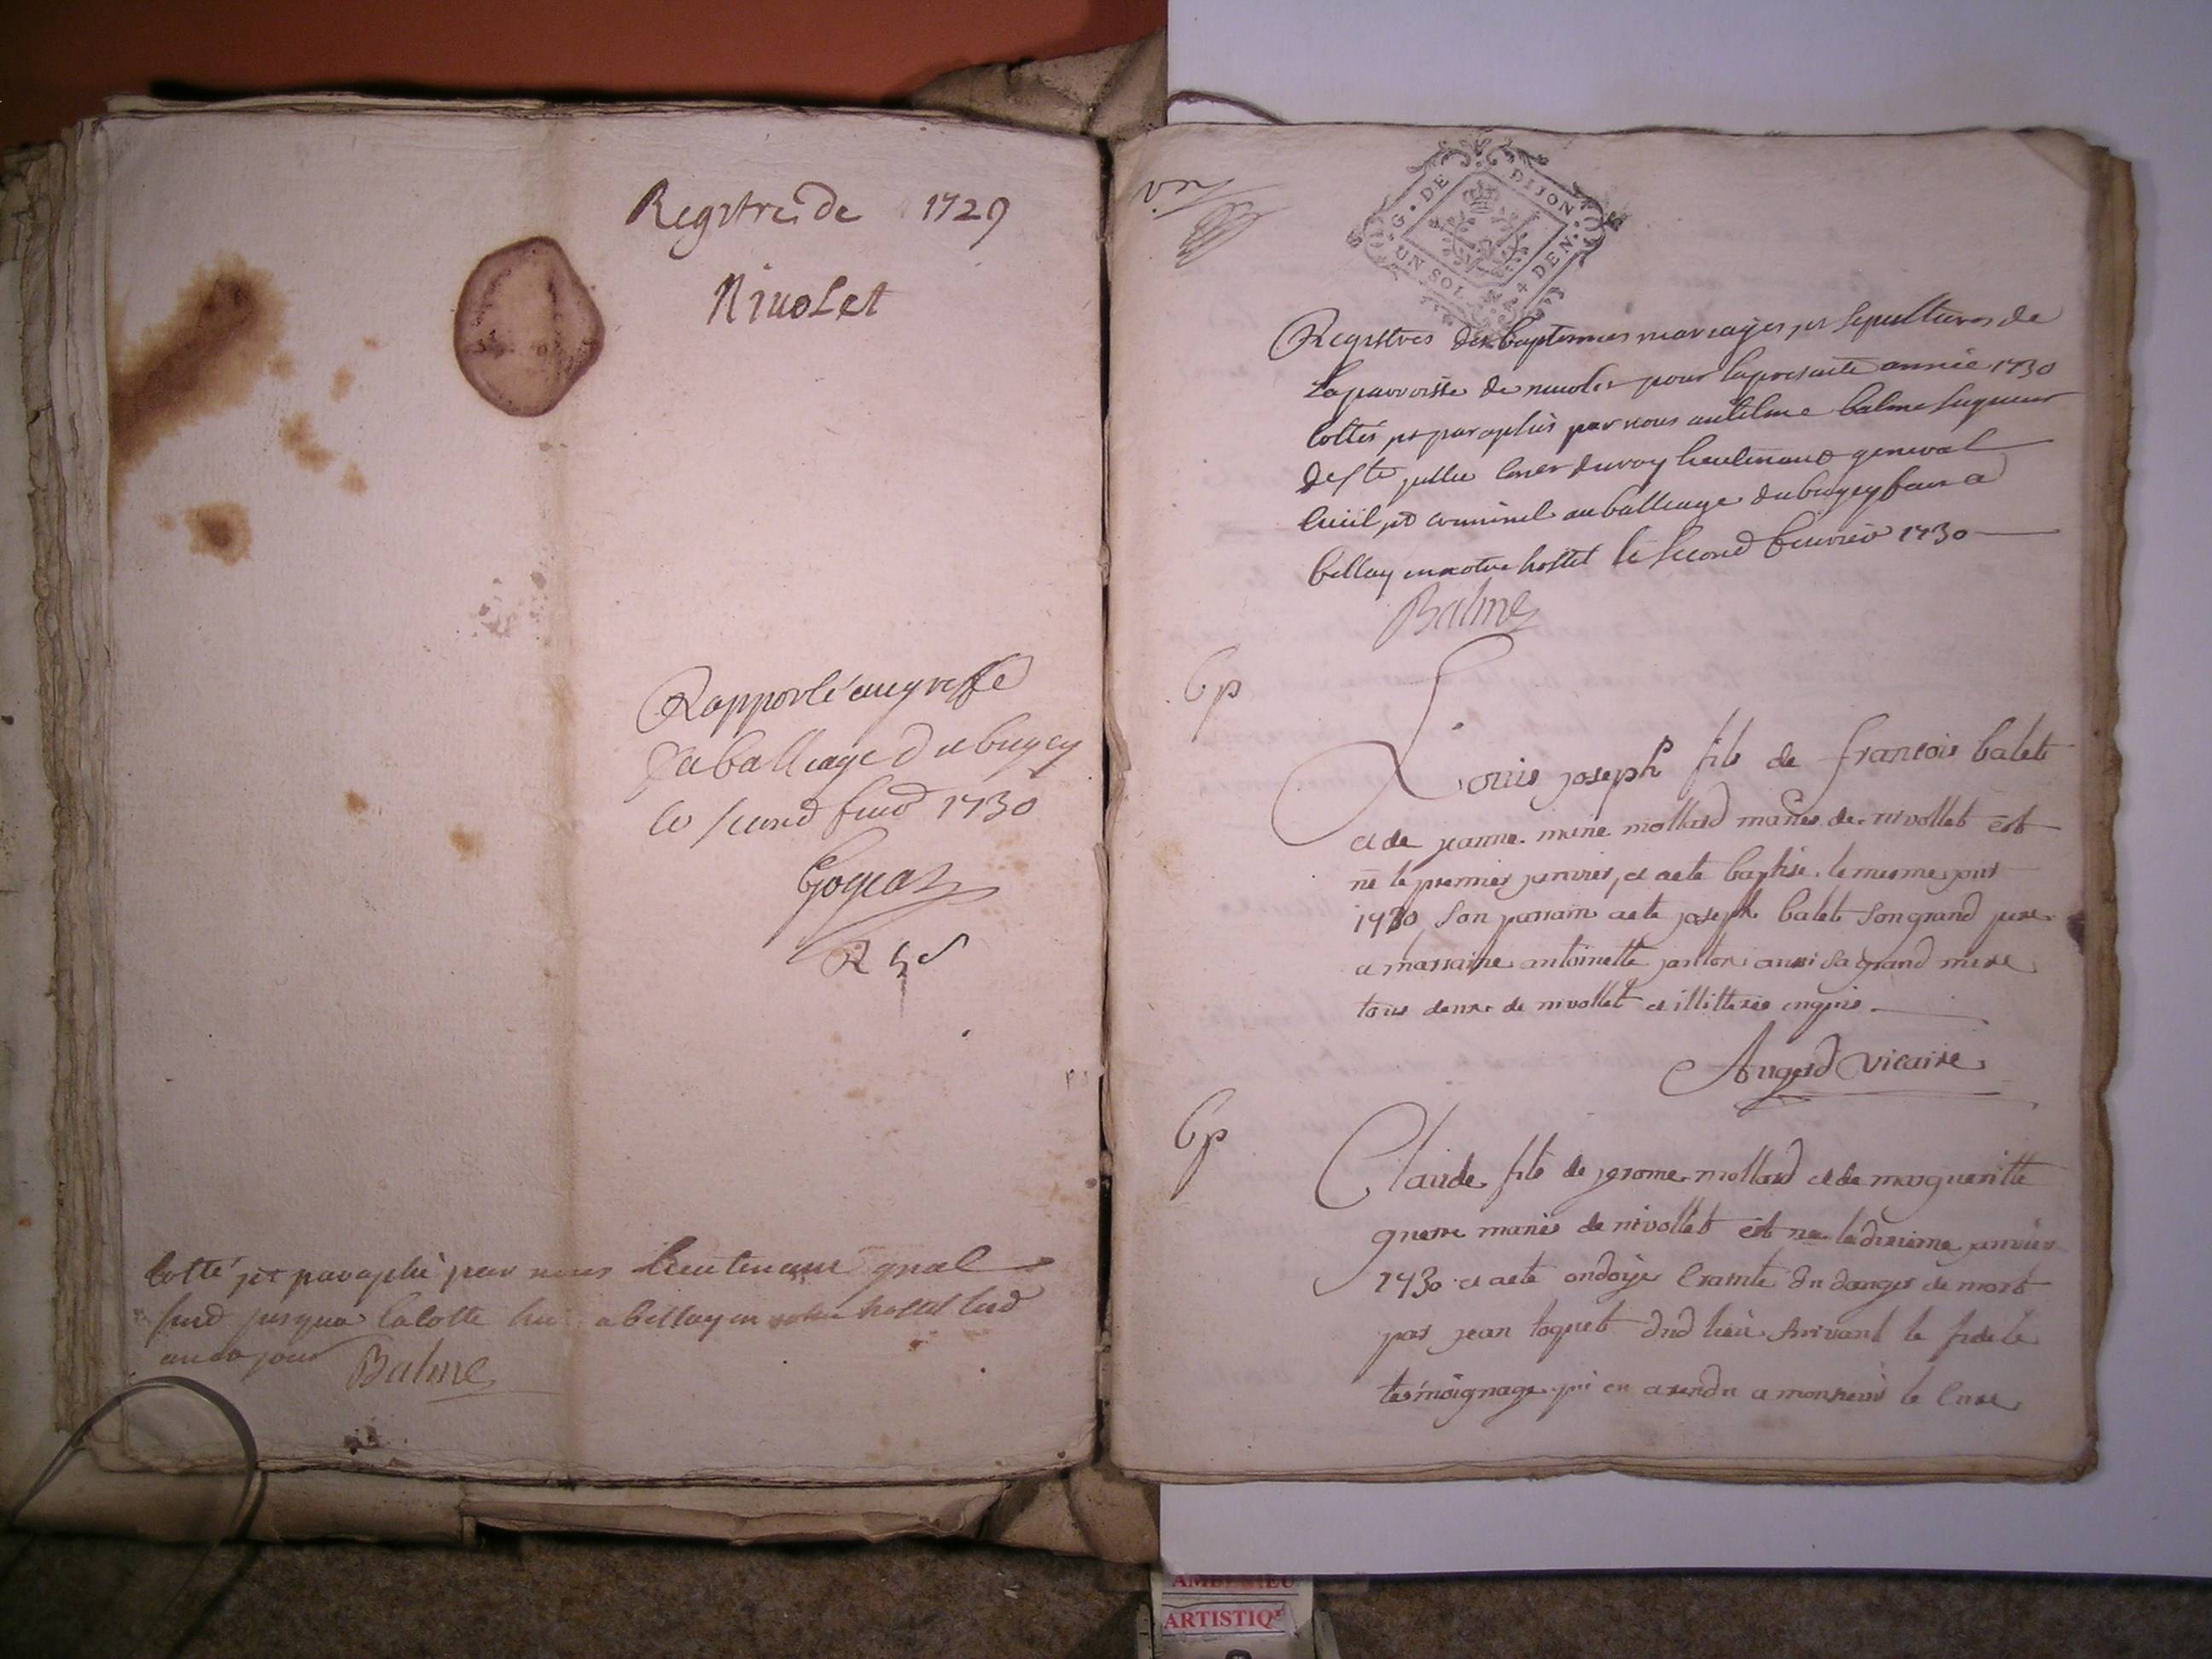 Registre de 1729
Nivolet
Rapporté au greffe
du balliage du bugey
le second 1730
cotté et paraphé par nous lieutenant gnal
jusqua la cotte a bellay en notre hostel
Balme
G. DE DIJON
UN SOL 4 DEN.
Registres des baptemes mariages et sepultures de
la parroisse de pour la presente année 1730
cottés et paraphés par nous antelme balme seigneur
de ste jullie coner du roy lieutenant general
civil et criminel au balliage du bugey a
bellay en notre hostel le second 1730
Balme
bp
Louis joseph fils de francois balet
et de jeanne marie mollard mariés de nivollet est
né le premier janvier, et a ete baptisé le mesme jour
1730 son parrain a ete joseph balet son grand pere
et marraine antoinette aussi sa grand mere
tous deux de nivollet et illitterés enquis
Augerd vicaire
bp
Claude fils de jerome mollard et de margueritte
mariés de nivollet est né le dixieme janvier
1730 et a ete ondoyé crainte du danger de mort
par jean toquet dud lieu suivant le fidele
tesmoignage qui en a rendu a monsieur le cure
ARTISTIQ